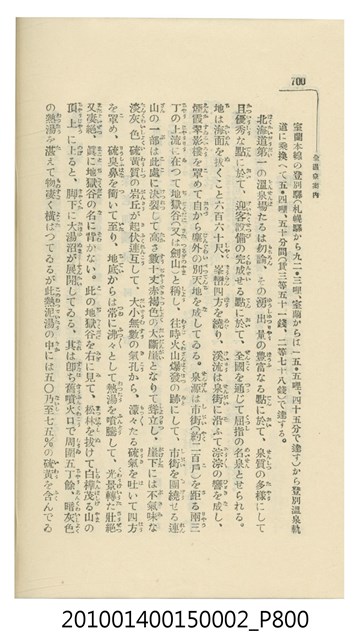 700
全國童案内
室蘭本線の登別驛(札幌驛から九一・三哩、室蘭からは一五・五哩、四十五分で達す)から登別溫泉軌
道に乘換へて五・四哩、五十分間(賃三等五十一錢、二等七十八錢)で達する。
北海道第一の溫泉場たるは勿論、その湧出量の豐富なる點に於て、泉質の多樣にして
且優秀な點に於て、迎客設備の完成せる點に於て、全國を通じて屈指の名泉とせられる。
地は海面を拔くこと六百六十尺、峯巒四方を繞り、溪流は泉街に沿ふて淙淙の響を成し、
煙霞翠影樓を罩めて自から塵外の別天地を成してゐる。泉源は市街(約二百戶)を距る兩三
丁の上流に在つて地獄谷(又は劍山)と稱し、往時火山爆發の跡にして、市街を圍繞せる連
山の一部は此處に決裂して高さ數十丈赤褐色の大斷崖となりて聳立し、崖下には不氣味な
淡灰色硫黃質の岩丘が起伏連互して、大小無數の氣孔から、濛々たる硫氣を吐いて四方
を罩め、硫臭鼻を衝いて至り、地底からは常に沸々として熱湯を噴騰して、光景轉た壯絕
又凄絕、眞に地獄谷の名に背かない。此の地獄谷を右に見て、松林を拔けて白樺茂る山の
頂上に上ると、脚下に大湯沼が展開してゐる。其は卽ち舊噴火口で周圍五丁餘、暗灰色
の熱湯を湛えて物凄く橫はつてゐるが此熱泥湯の中には五〇乃至七五%の硫黃を含んでゐる
201001400150002_P800